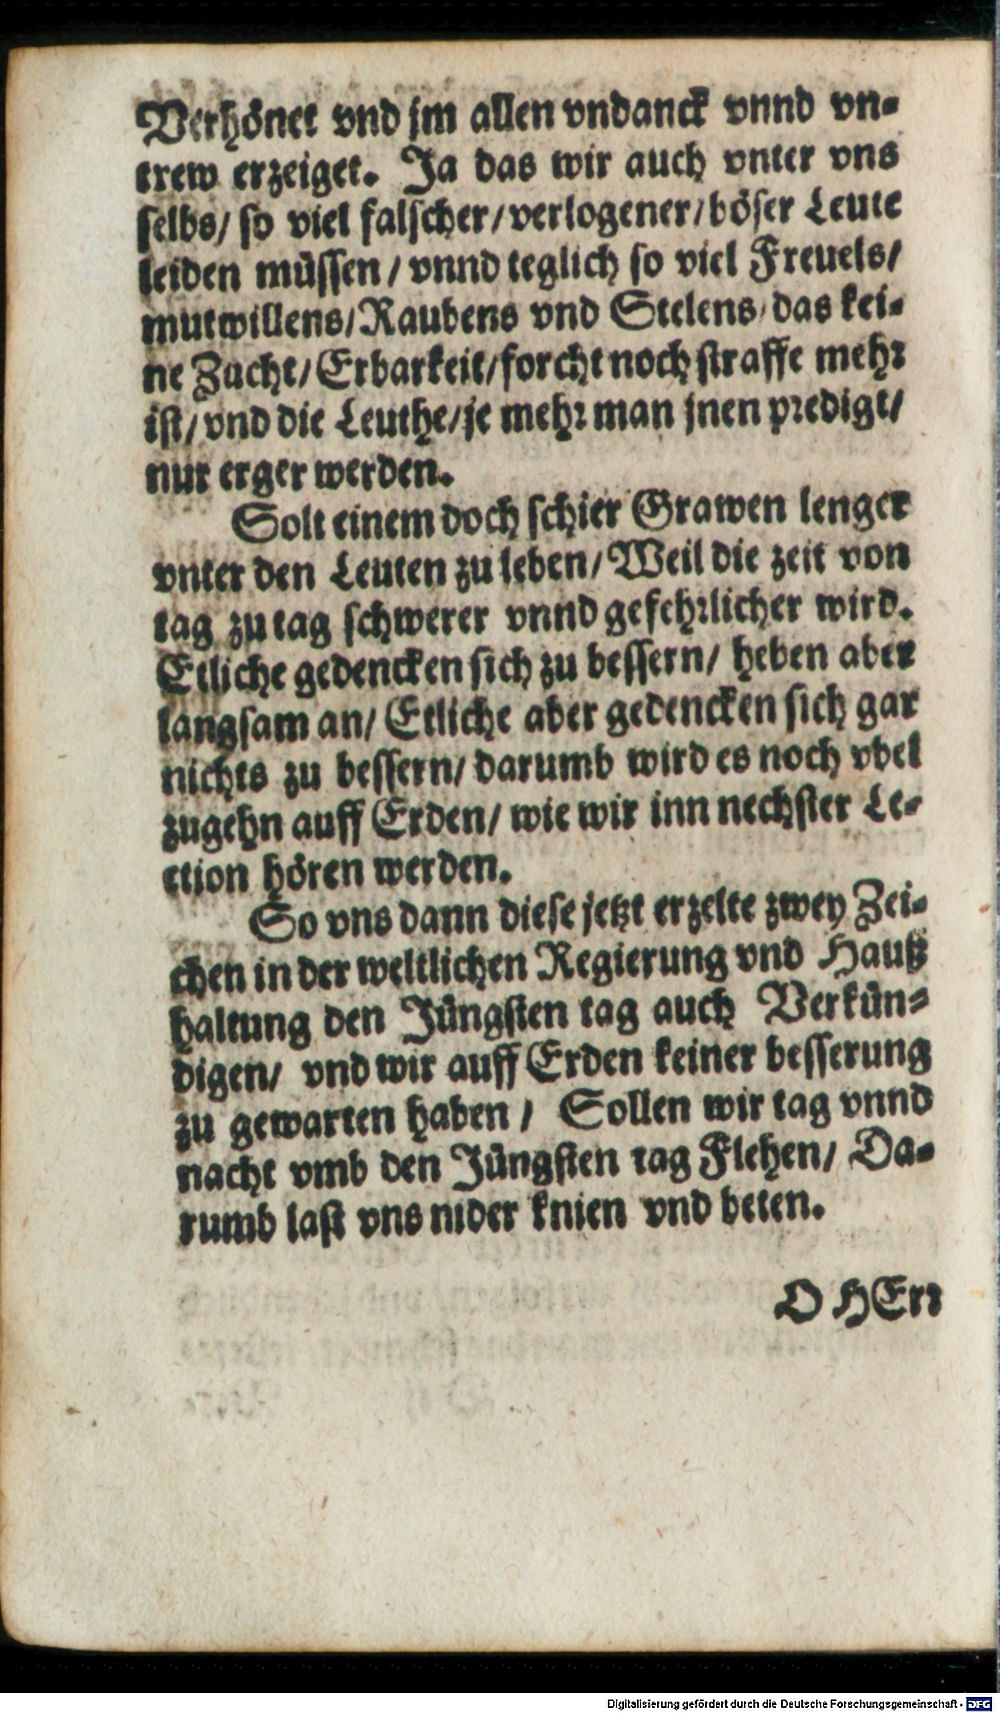 Verhönet vnd jm allen vndanck vnnd vn-
trew erzeiget. Ja das wir auch vnter vns
selbs/ so viel falscher/ verlogener/ böser Leute
leiden müssen/ vnnd teglich so viel Freuels/
mutwillens/ Raubens vnd Stelens/ das kei-
ne Zucht/ Erbarkeit/ forcht noch straffe mehr
ist/ vnd die Leuthe/ je mehr man jnen predigt/
nur erger werden.
Solt einem doch schier Grawen lenger
vnter den Leuten zu leben/ Weil die zeit von
tag zu tag schwerer vnnd gefehrlicher wird.
Etliche gedencken sich zu bessern/ heben aber
langsam an/ Etliche aber gedencken sich gar
nichts zu bessern/ darumb wird es noch vbel
zugehn auff Erden/ wie wir inn nechster Le-
ction hören werden.
So vns dann diese jetzt erzelte zwey Zei-
chen in der weltlichen Regierung vnd Hauß
haltung den Jüngsten tag auch Verkün-
digen/ vnd wir auff Erden keiner besserung
zu gewarten haben/ Sollen wir tag vnnd
nacht vmb den Jüngsten tag Flehen/ Da-
rumb last vns nider knien vnd beten.
O HErr
Digitalisierung gefördert durch die Deutsche Forschungsgemeinschaft - DFG